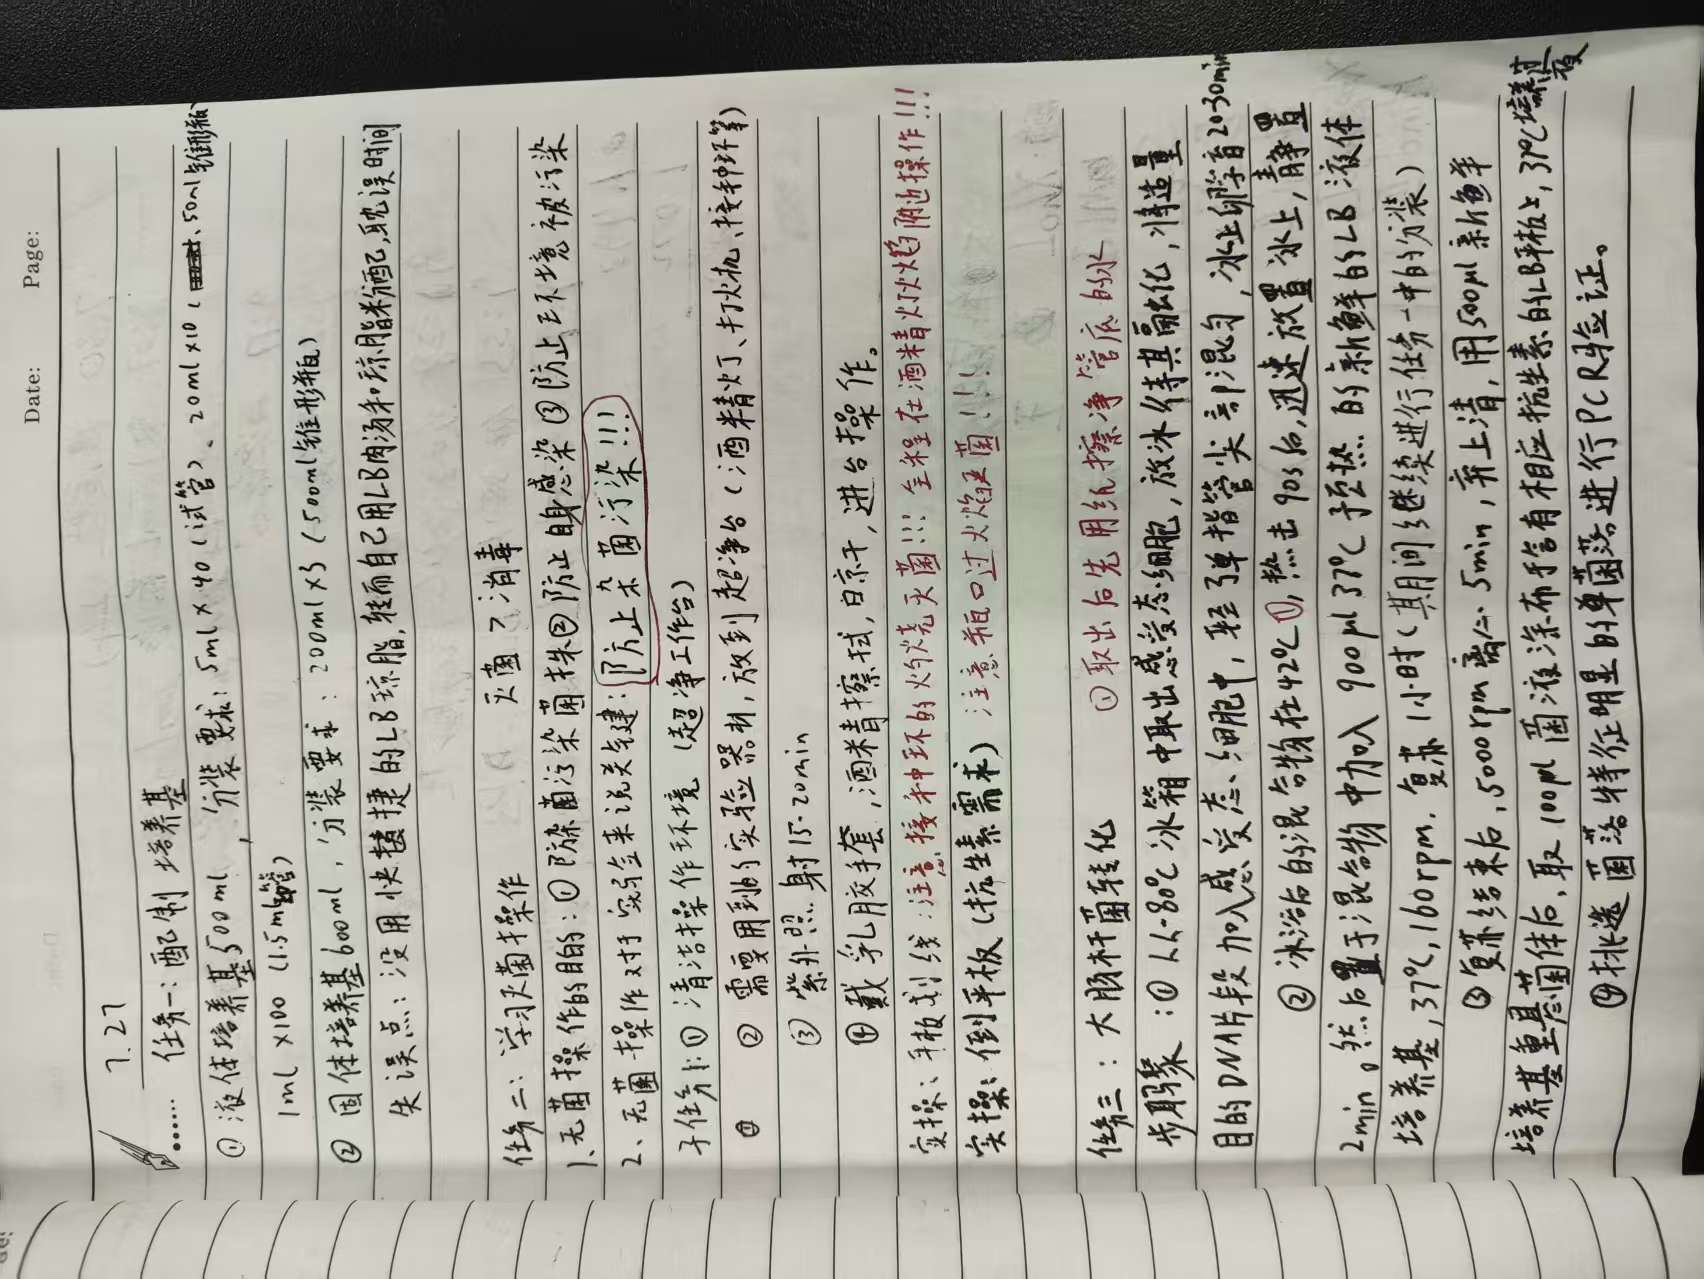 Date: Page:
7.27
任务一：配制 培养基
①液体培养基500ml，分装要求：5ml×40（试管）、20ml×10（50ml锥形瓶）
1ml×100（1.5ml管）
②固体培养基600ml，分装要求：200ml×3（500ml锥形瓶）
失误点：没用快捷的LB琼脂，转而自己用LB肉汤和琼脂粉配，耽误时间
灭菌＞消毒
任务二：学习灭菌操作
1、无菌操作的目的：①防杂菌污染菌株②防止自身感染③防止环境被污染
2、无菌操作对于实验来说关键：防止杂菌污染!!!
子任务1：①清洁操作环境（超净工作台）
②需要用到的实验器材，放到超净台（酒精灯、打火机、接种环等）
③紫外照射15-20min
④戴乳胶手套，酒精擦拭，晾干，进台操作。
实操：平板划线：注意接种环的灼烧灭菌!!!全程在酒精灯火焰附近操作!!!
实操：倒平板（抗生素需求）注意瓶口过火焰灭菌!!!
任务三：大肠杆菌转化 ①取出后先用纸擦净管底的水
步骤：①从-80℃冰箱中取出感受态细胞，放冰水待其融化，将适量
目的DNA片段加入感受态细胞中，轻弹指管尖部混匀，冰上孵育20-30min
②冰浴后的混合物在42℃①，热击90s后，迅速放置冰上，静置
2min。然后置于混合物中加入900μl 37℃预热的新鲜的LB液体
培养基，37℃，160rpm，复苏1小时（期间继续进行任务一中的分装）
③复苏结束后，5000rpm离心5min，弃上清，用500μl新鲜
培养基重悬菌体后，取100μl菌液涂布于含有相应抗生素的LB平板上，37℃培养过夜
④挑选菌落特征明显的单菌落进行PCR验证。